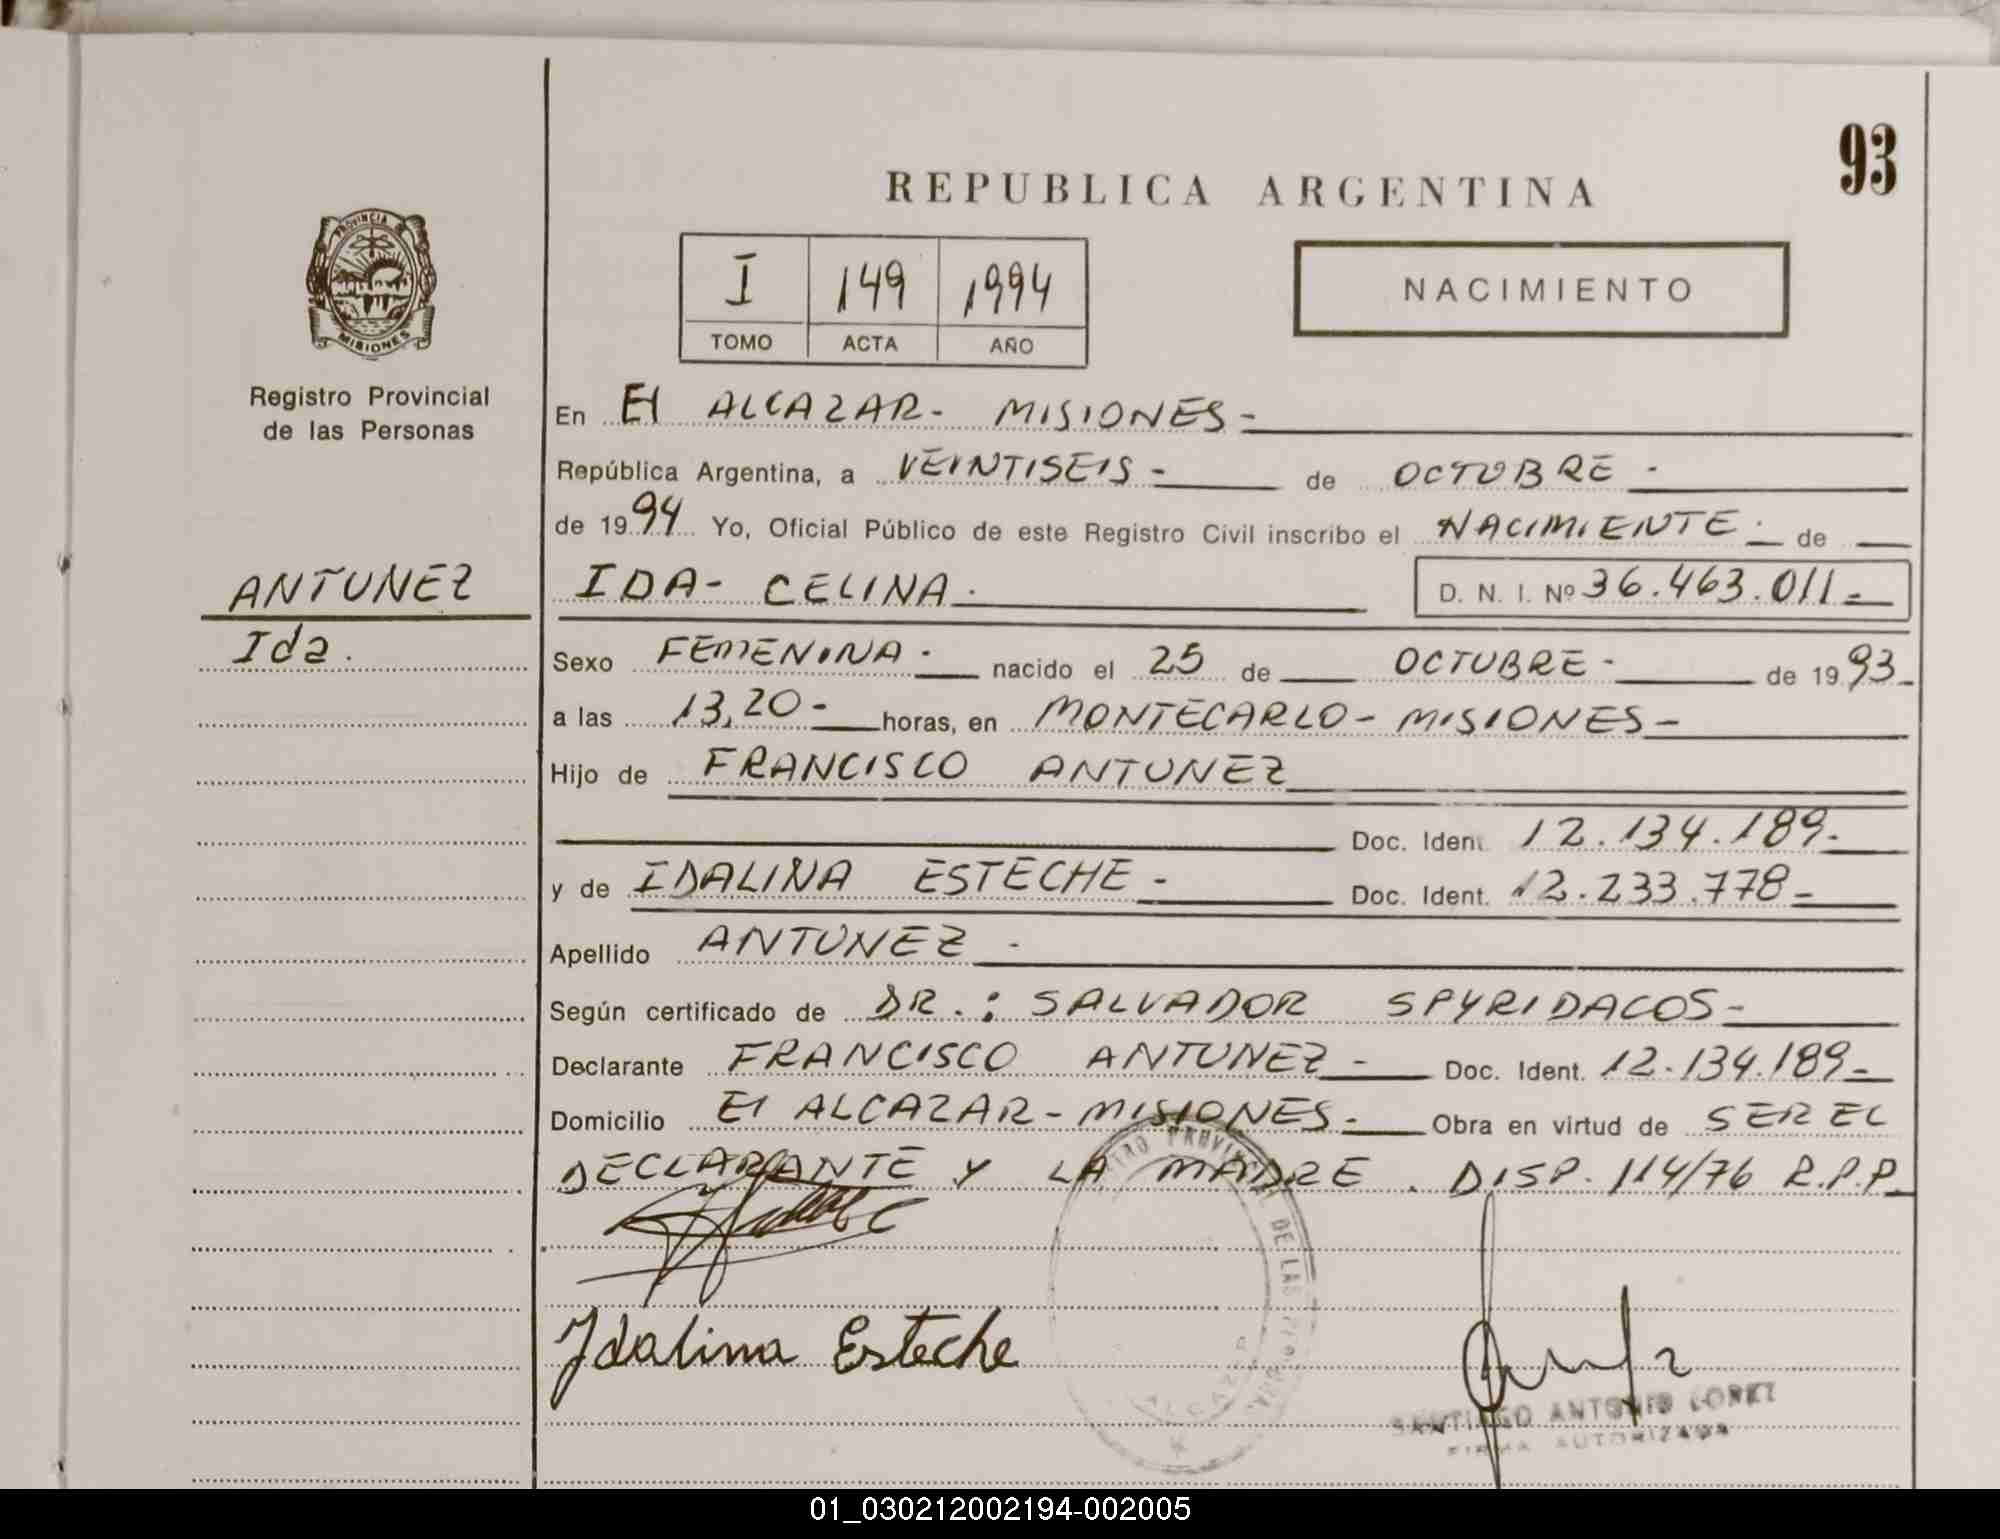 93
REPUBLICA ARGENTINA
PROVINCIA DE
MISIONES
I 149 1994
TOMO ACTA AÑO
NACIMIENTO
Registro Provincial
de las Personas
En El ALCAZAR - MISIONES -
República Argentina, a VEINTISEIS - de OCTUBRE -
de 1994 Yo, Oficial Público de este Registro Civil inscribo el NACIMIENTE - de
ANTUNEZ
Ida.
IDA - CELINA - D. N. I. Nº 36.463.011 -
Sexo FEMENINA - nacido el 25 de OCTUBRE - de 1993 -
a las 13,20 - horas, en MONTECARLO - MISIONES -
Hijo de FRANCISCO ANTUNEZ
Doc. Ident. 12.134.189 -
y de IDALINA ESTECHE - Doc. Ident. 12.233.778 -
Apellido ANTUNEZ -
Según certificado de DR.: SALVADOR SPYRIDACOS -
Declarante FRANCISCO ANTUNEZ - Doc. Ident. 12.134.189 -
Domicilio El ALCAZAR - MISIONES - Obra en virtud de SER EL
DECLARANTE Y LA MADRE . DISP. 114/76 R.P.P.
Idalina Esteche
SANTIAGO ANTONIO LOPEZ
FIRMA AUTORIZADA
01_030212002194-002005